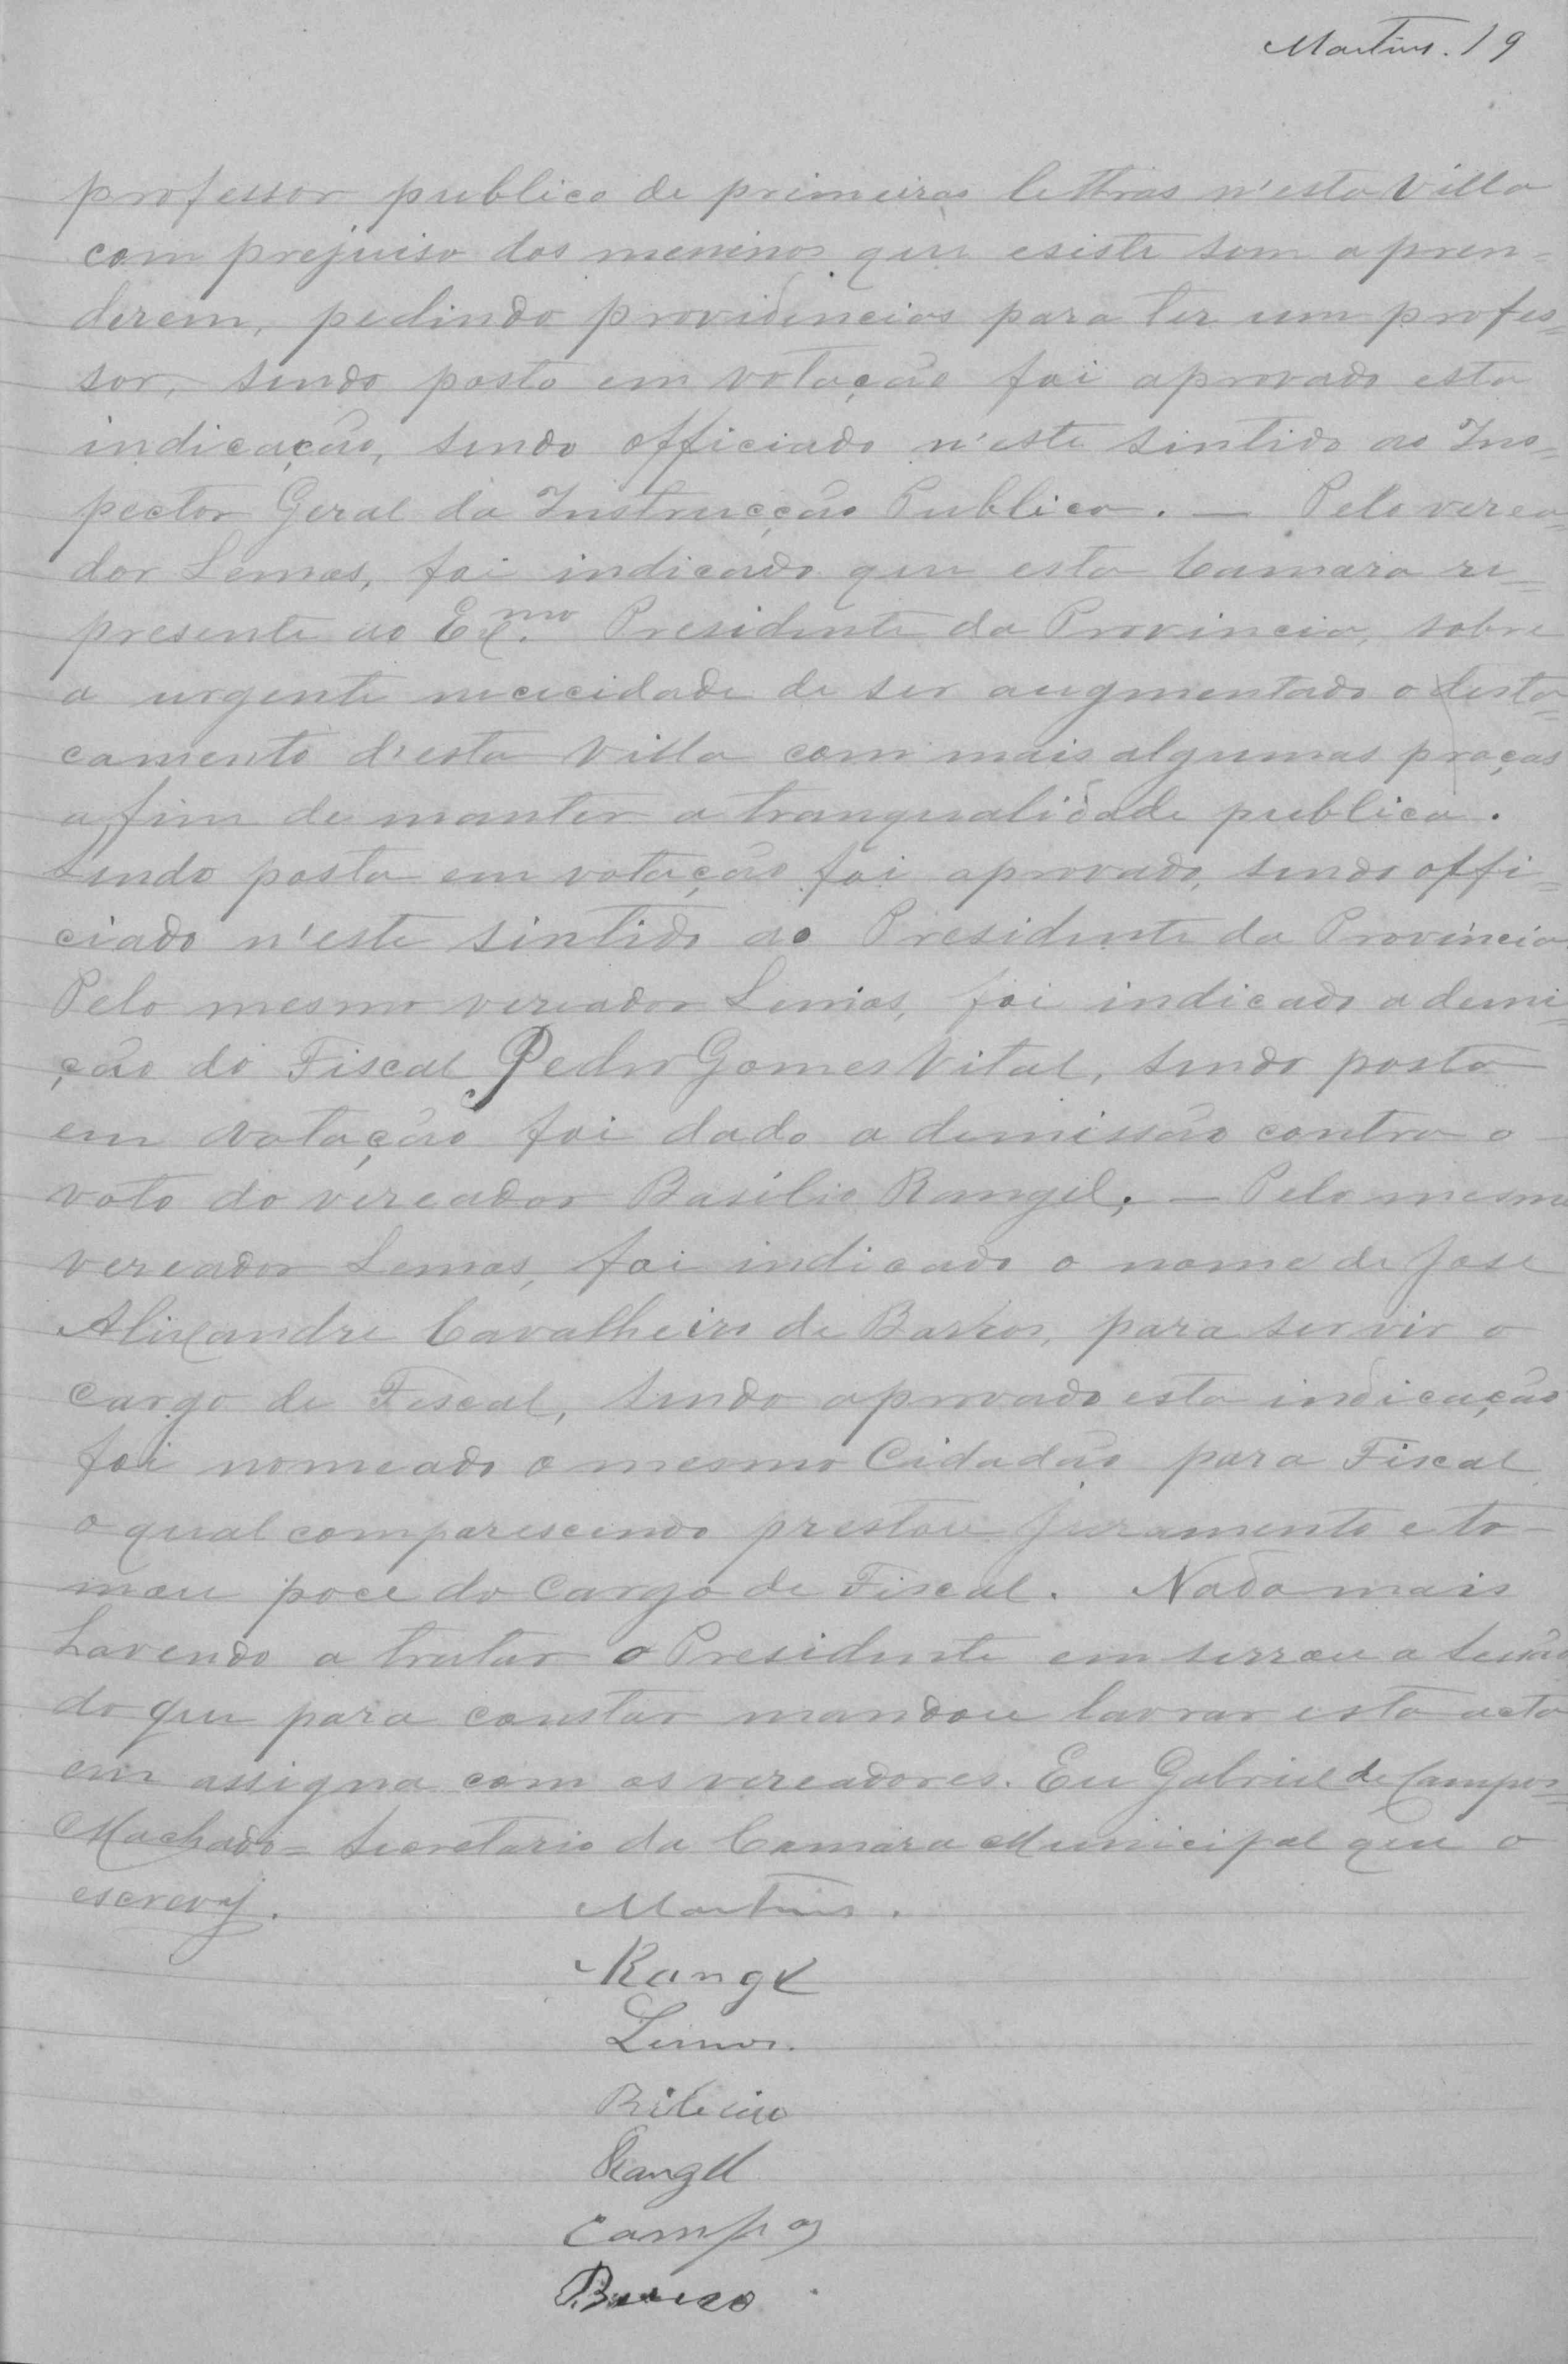 Martins. 19
professor publico de primeiras lettras n'esta Villa
com prejuiso dos meninos que esiste sem apren=
derem, pedindo providencias para ter um profes=
sor, sendo posto em votação foi aprovado esta
indicação, sendo officiado n'este sintido ao Ins=
pector Geral da Instrucção Publica. — Pelo verea=
dor Lemos, foi indicado que esta Camara re=
presente ao Ex.mo Presidente da Provincia, sobre
a urgente nececidade de ser augmentado o desta=
camento d'esta Villa com mais algumas praças
a fim de manter a tranqualidade publica.
Sendo posta em votação foi aprovado, sendo offi=
ciado n'este sintido ao Presidente da Provincia
Pelo mesmo vereador Lemos, foi indicado a demi=
ção do Fiscal Pedro Gomes Vital, sendo posta
em votação foi dado a demissão contra o
voto do vereador Basilio Rangel. — Pelo mesmo
vereador Lemos, foi indicado o nome de Jose
Alixandre Cavalheiro de Barros, para servir o
Cargo de Fiscal, sendo aprovado esta indicação
foi nomeado o mesmo Cidadão para Fiscal
o qual comparescendo prestou juramento e to-
mou poce do Cargo de Fiscal. Nada mais
havendo a tratar o Presidente em serrou a sessão
do que para constar mandou lavrar esta acta
em assigna com os vereadores. Eu Gabriel de Campos=
Machado= Secretario da Camara Municipal que o
escrevy.
Martins.
Rangel
Lemos.
Ribeiro
Rangel
Campos